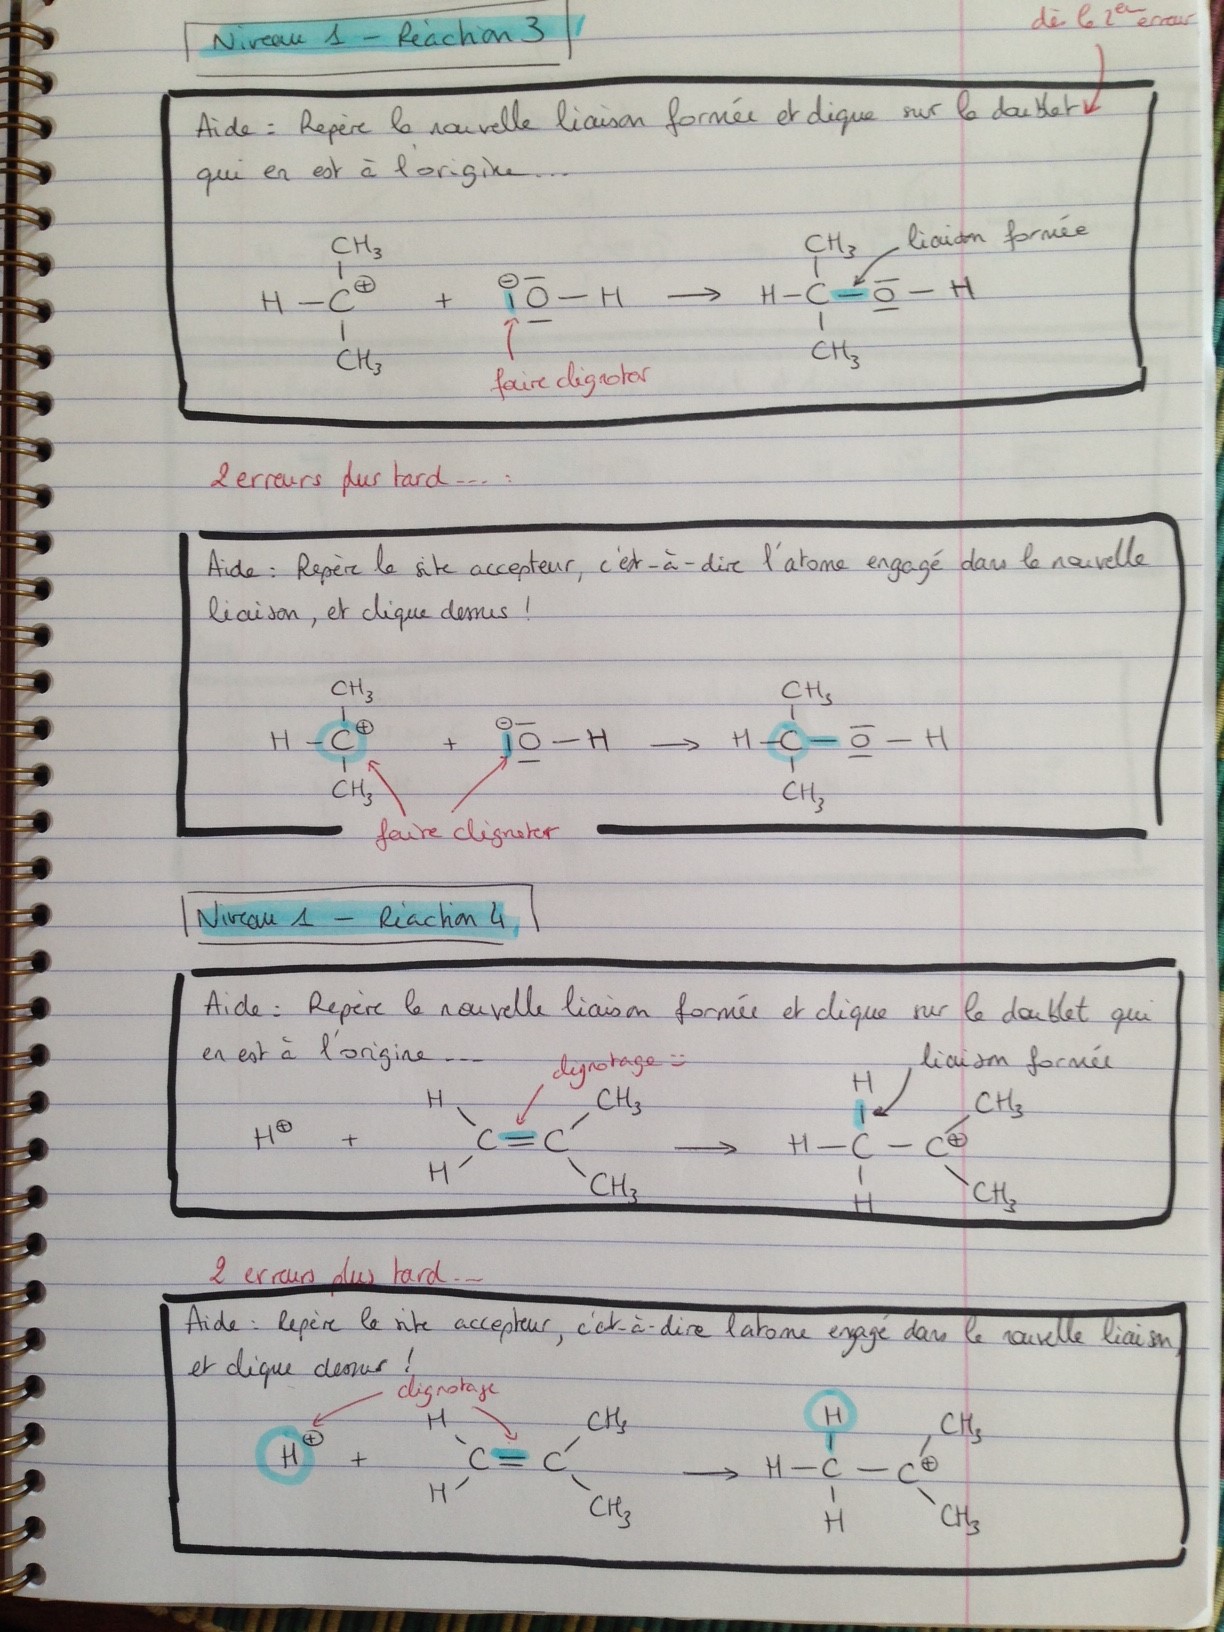 dès la 2ème erreur
Niveau 1 - Réaction 3
Aide : Repère la nouvelle liaison formée et clique sur le doublet
qui en est à l'origine...
CH3 CH3 liaison formée
H - C ⊕ + ⊖ | O - H → H - C - O - H
CH3 CH3
faire clignoter
2 erreurs plus tard.... :
Aide : Repère le site accepteur, c'est-à-dire l'atome engagé dans la nouvelle
liaison, et clique dessus !
CH3 CH3
H - C ⊕ + ⊖ | O - H → H - C - O - H
CH3 CH3
faire clignoter
Niveau 1 - Réaction 4
Aide : Repère la nouvelle liaison formée et clique sur le doublet qui
en est à l'origine ....
clignotage = liaison formée
H CH3 H CH3
H⊕ + C = C → H - C - C⊕
H CH3 H CH3
2 erreurs plus tard...
Aide : Repère le site accepteur, c'est-à-dire l'atome engagé dans la nouvelle liaison,
et clique dessus !
clignotage
H CH3 H CH3
H⊕ + C = C → H - C - C⊕
H CH3 H CH3